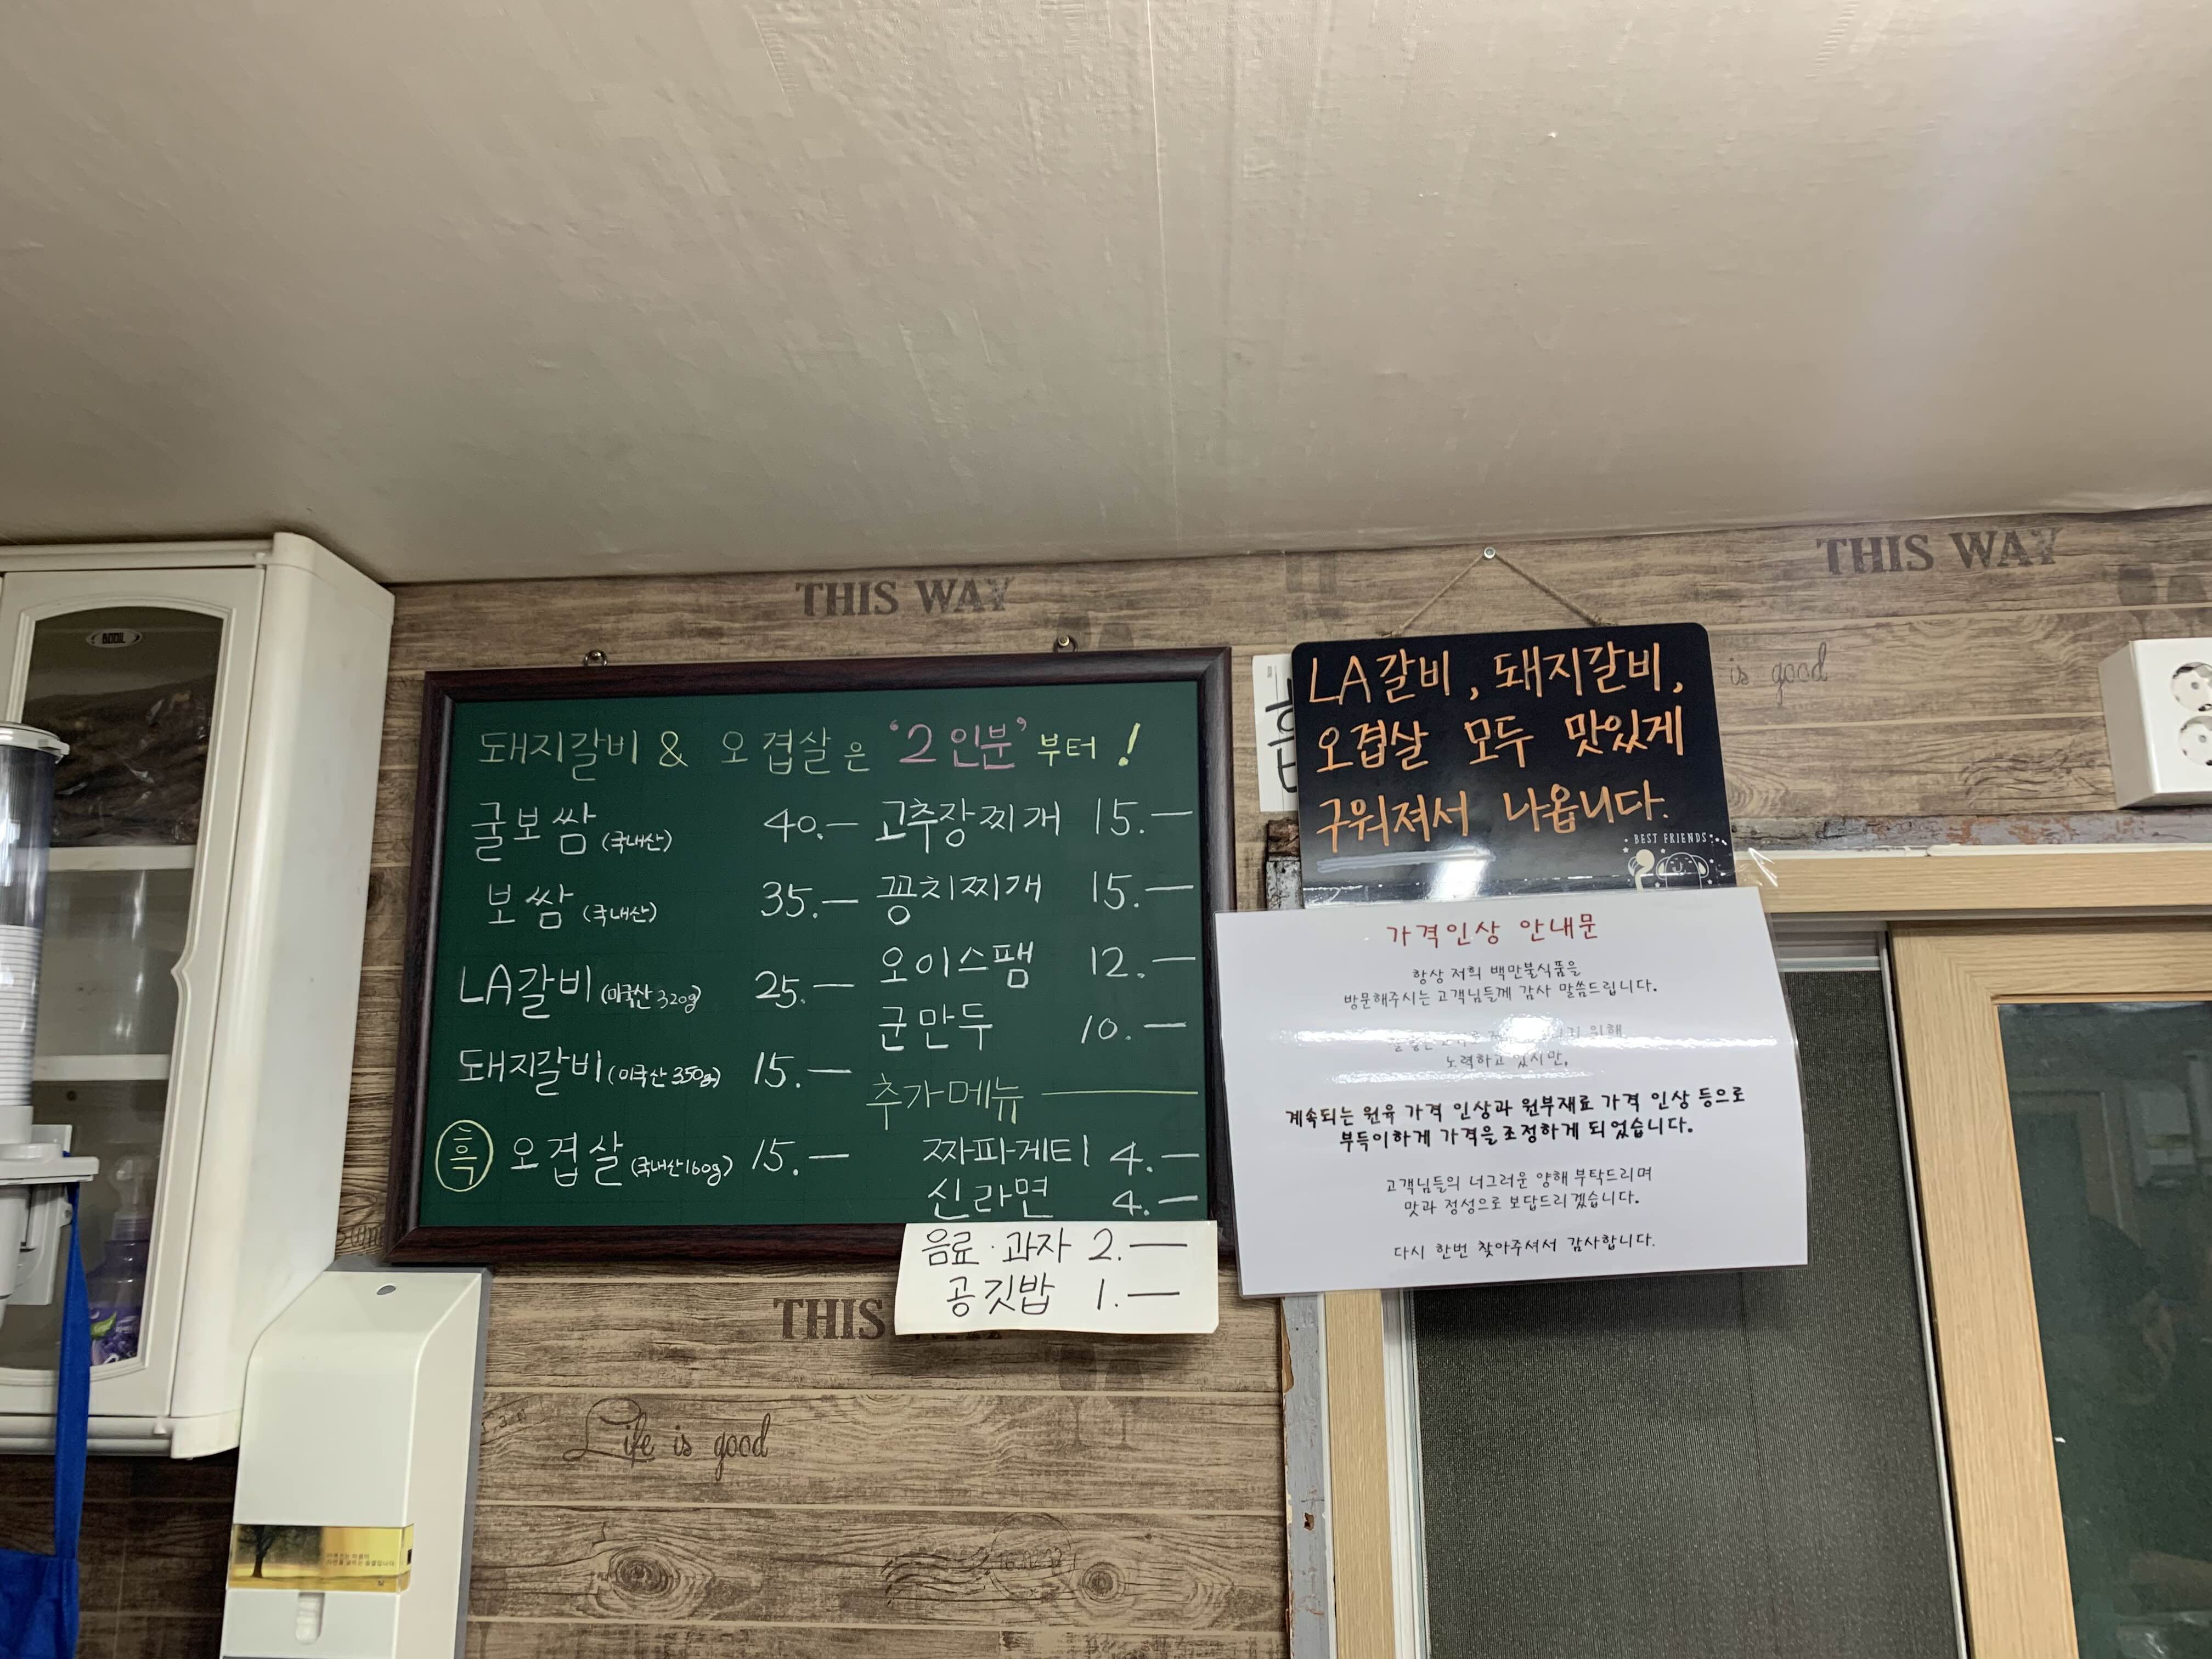 THIS WAY
THIS WAY
is good
BODIL
돼지갈비 & 오겹살은 '2인분'부터!
굴보쌈 (국내산) 40.—
보쌈 (국내산) 35.—
LA갈비 (미국산 320g) 25.—
돼지갈비 (미국산 350g) 15.—
흑 오겹살 (국내산 160g) 15.—
고추장찌개 15.—
꽁치찌개 15.—
오이스팸 12.—
군만두 10.—
추가메뉴
짜파게티 4.—
신라면 4.—
음료·과자 2.—
공깃밥 1.—
LA갈비, 돼지갈비,
오겹살 모두 맛있게
구워져서 나옵니다.
BEST FRIENDS
가격인상 안내문
항상 저희 백만불식품을
방문해주시는 고객님들께 감사 말씀드립니다.
위해
노력하고 있지만,
계속되는 원육 가격 인상과 원부재료 가격 인상 등으로
부득이하게 가격을 조정하게 되었습니다.
고객님들의 너그러운 양해 부탁드리며
맛과 정성으로 보답드리겠습니다.
다시 한번 찾아주셔서 감사합니다.
THIS WAY
Life is good